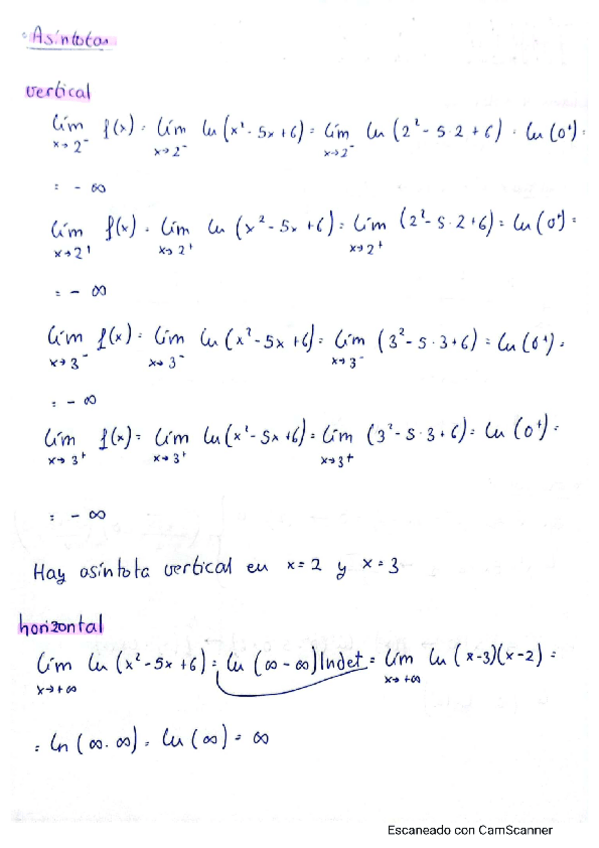 Asíntotas
vertical
lim x→2⁻ f(x) = lim x→2⁻ ln(x²-5x+6) = lim x→2⁻ ln(2²-5·2+6) = ln(0⁺) =
= -∞
lim x→2⁺ f(x) = lim x→2⁺ ln(x²-5x+6) = lim x→2⁺ (2²-5·2+6) = ln(0⁺) =
= -∞
lim x→3⁻ f(x) = lim x→3⁻ ln(x²-5x+6) = lim x→3⁻ (3²-5·3+6) = ln(0⁺) =
= -∞
lim x→3⁺ f(x) = lim x→3⁺ ln(x²-5x+6) = lim x→3⁺ (3²-5·3+6) = ln(0⁺) =
= -∞
Hay asíntota vertical en x=2 y x=3
horizontal
lim x→+∞ ln(x²-5x+6) = ln(∞-∞) Indet = lim x→+∞ ln(x-3)(x-2) =
= ln(∞·∞) = ln(∞) = ∞
Escaneado con CamScanner